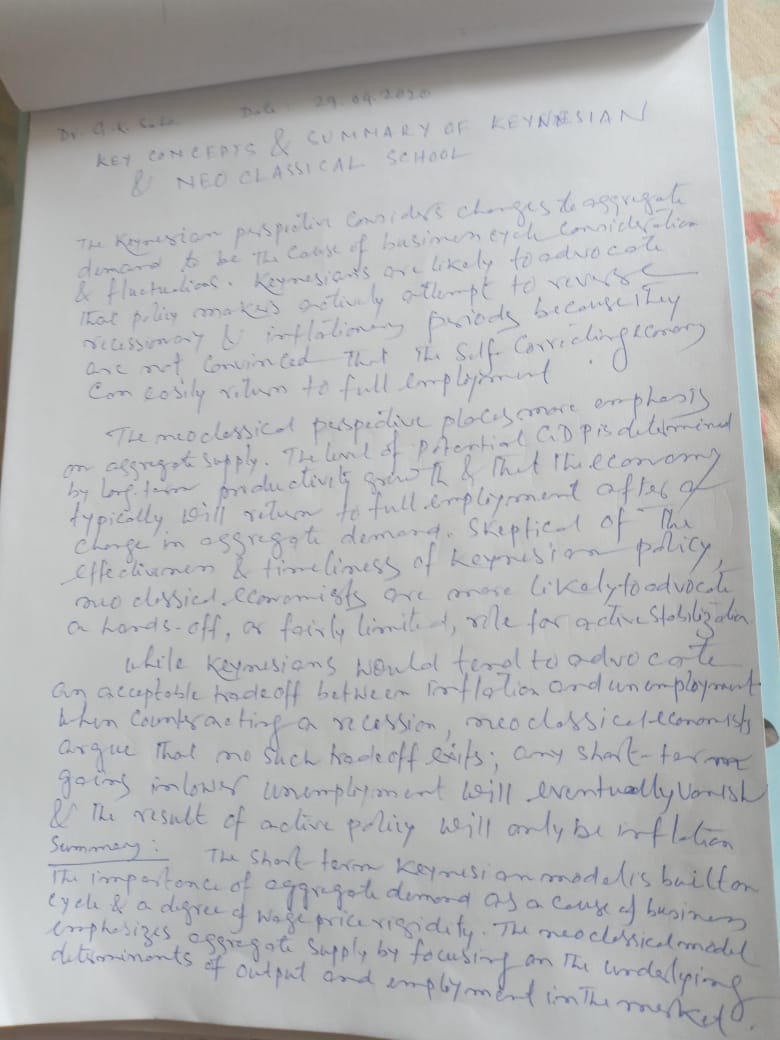 Dr. G. K. Saha Date: 29.04.2020
KEY CONCEPTS & SUMMARY OF KEYNESIAN
& NEO CLASSICAL SCHOOL
The Keynesian perspective considers changes to aggregate
demand to be the cause of business cycle consideration
& fluctuations. Keynesians are likely to advocate
that policy makers actively attempt to reverse
recessionary & inflationary periods because they
are not convinced that the self-correcting economy
can easily return to full employment.
The neoclassical perspective places more emphasis
on aggregate supply. The level of potential GDP is determined
by long term productivity growth & that the economy
typically will return to full employment after a
change in aggregate demand. Skeptical of the
effectiveness & timeliness of Keynesian policy,
neo classical economists are more likely to advocate
a hands-off, or fairly limited, role for active stabilization
While Keynesians would tend to advocate
an acceptable tradeoff between inflation and unemployment
when counteracting a recession, neoclassical economists
argue that no such tradeoff exits; any short-term
gains in lower unemployment will eventually vanish
& the result of active policy will only be inflation
Summary: The short-term Keynesian model is built on
the importance of aggregate demand as a cause of business
cycle & a degree of wage price rigidity. The neoclassical model
emphasizes aggregate supply by focusing on the underlying
determinants of output and employment in the market.